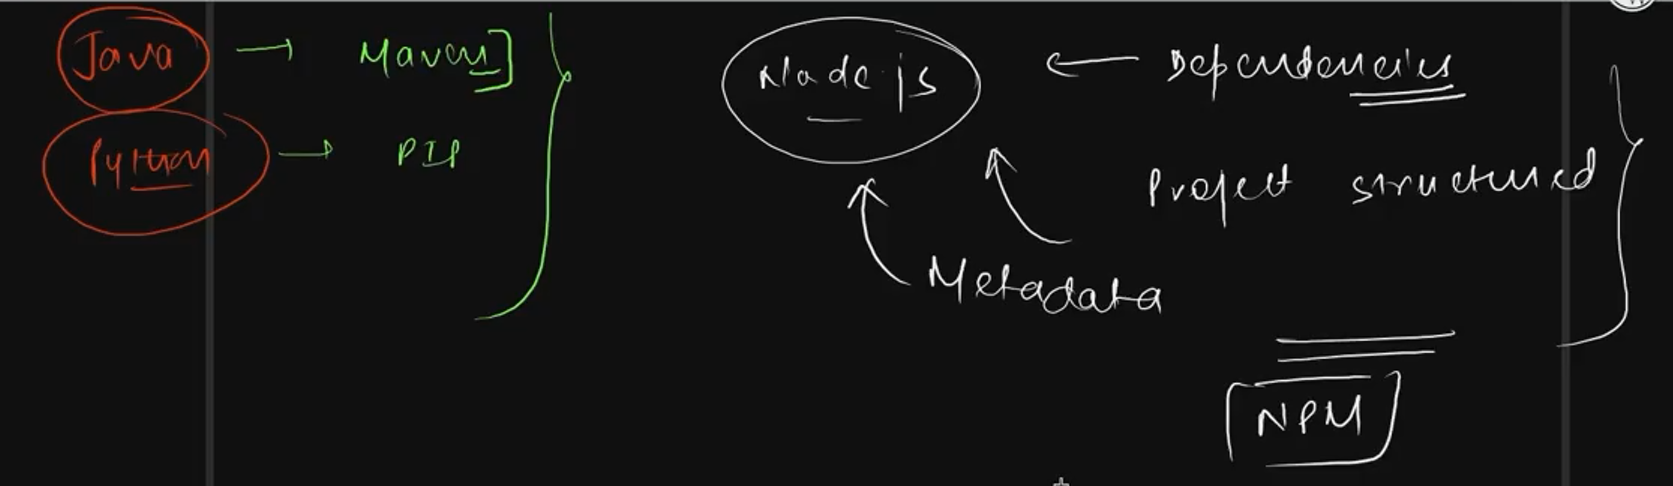 Java → Maven]
Python → PIP
Node js ← Dependencies
Project structured
Metadata
NPM